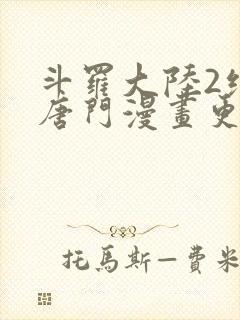 斗羅大陸2
唐門漫畫
托馬斯—費米